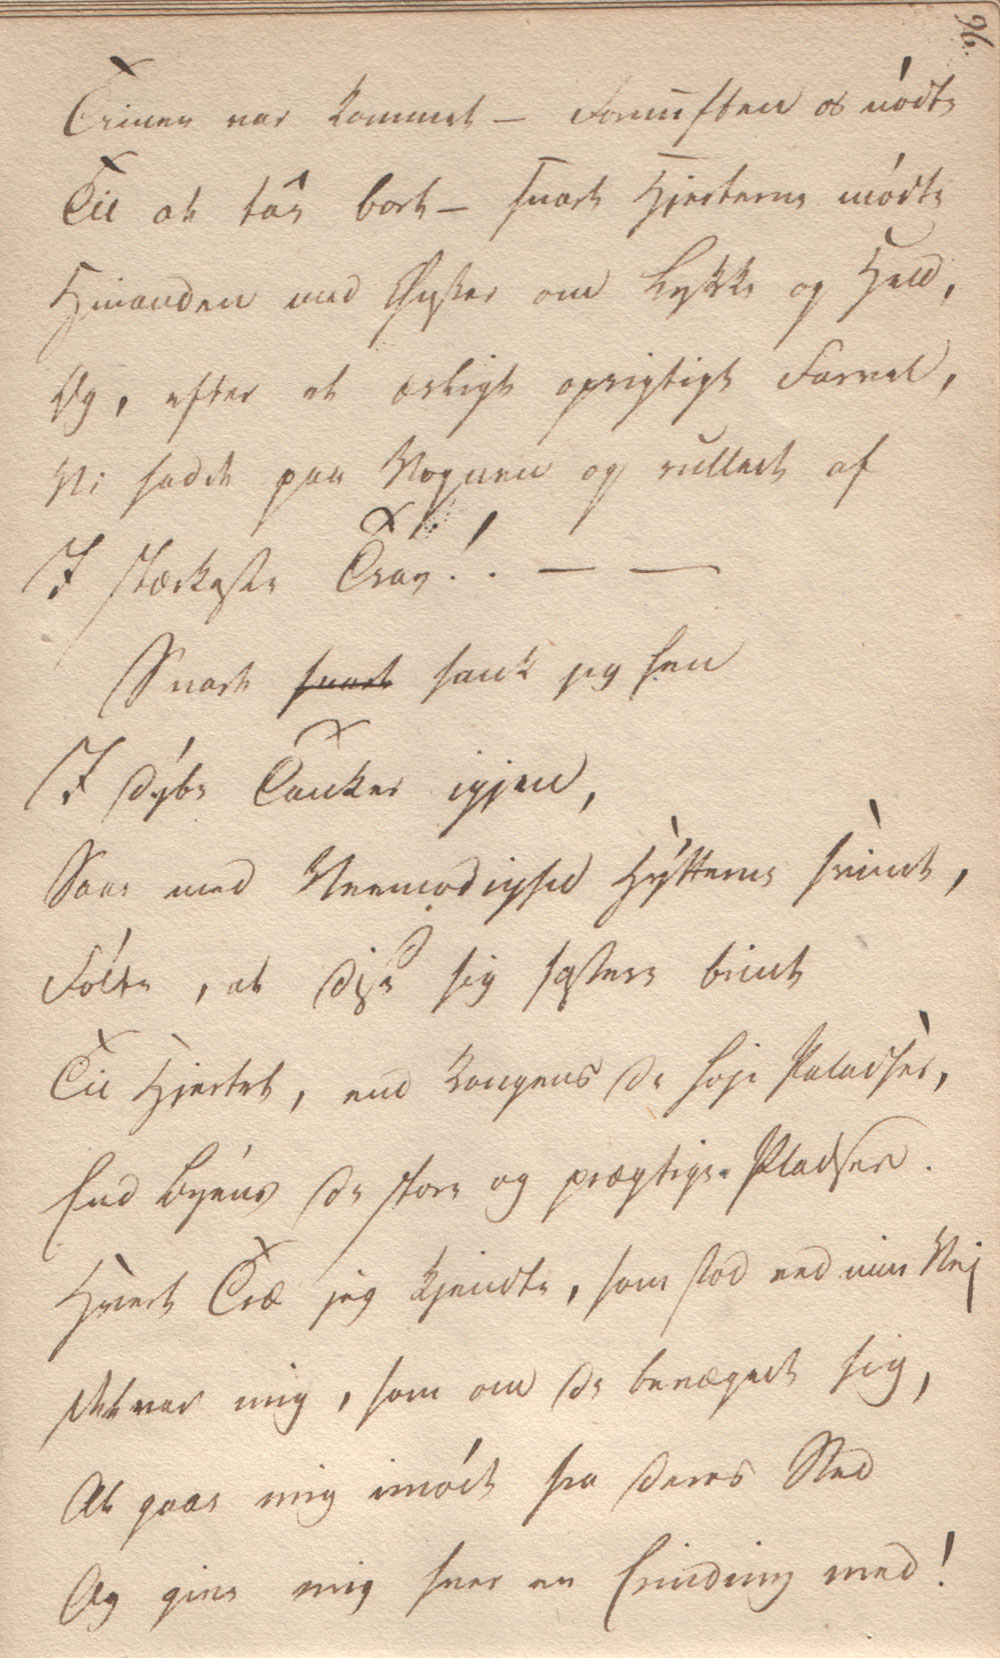 96.
Timen var kommet — Fornuften os nödte
Til at tåe bort — snart Hjerterne mödte
Hinanden med Ønsker om Lykke og Held,
Og, efter et ærligt oprigtigt Farvel,
Vi sadte paa Vognen og rullert af
I stærkeste Trav! . — —
Snart snart sank jeg hen
I dybe Tanker igjen,
Saae med Veemodighed Hytterne svindt,
Fölte, at disse sig fastere bindt
Til Hjertet, end Kongens de höje Paladser,
End Byens de store og prægtige Pladser.
Hvert Træ jeg kjendte, som stod ved min Vej
Det var mig, som om de bevæget sig,
At gaae mig imödt fra deres Sted
Og give mig hver en Erindring med!